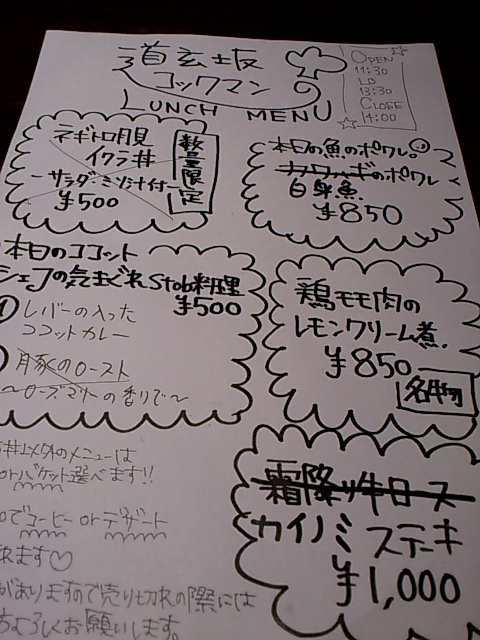 道玄坂
コックマン
LUNCH MENU
OPEN
11:30
LO
13:30
CLOSE
14:00
ネギトロ月見
イクラ丼
サラダ・ミソ汁付
¥500
数量限定
本日の魚のポワレ
カワハギのポワレ
白身魚
¥850
本日のココット
シェフの気まぐれStob料理
¥500
① レバーの入った
ココットカレー
豚のロースト
〜ローズマリーの香りで〜
鶏モモ肉の
レモンクリーム煮
¥850
名物
霜降り牛ロース
カイノミステーキ
¥1,000
丼以外のメニューは
orバケット選べます!!
でコーヒー or デザート
れます♡
がありますので売り切れの際には
よろしくお願いします。